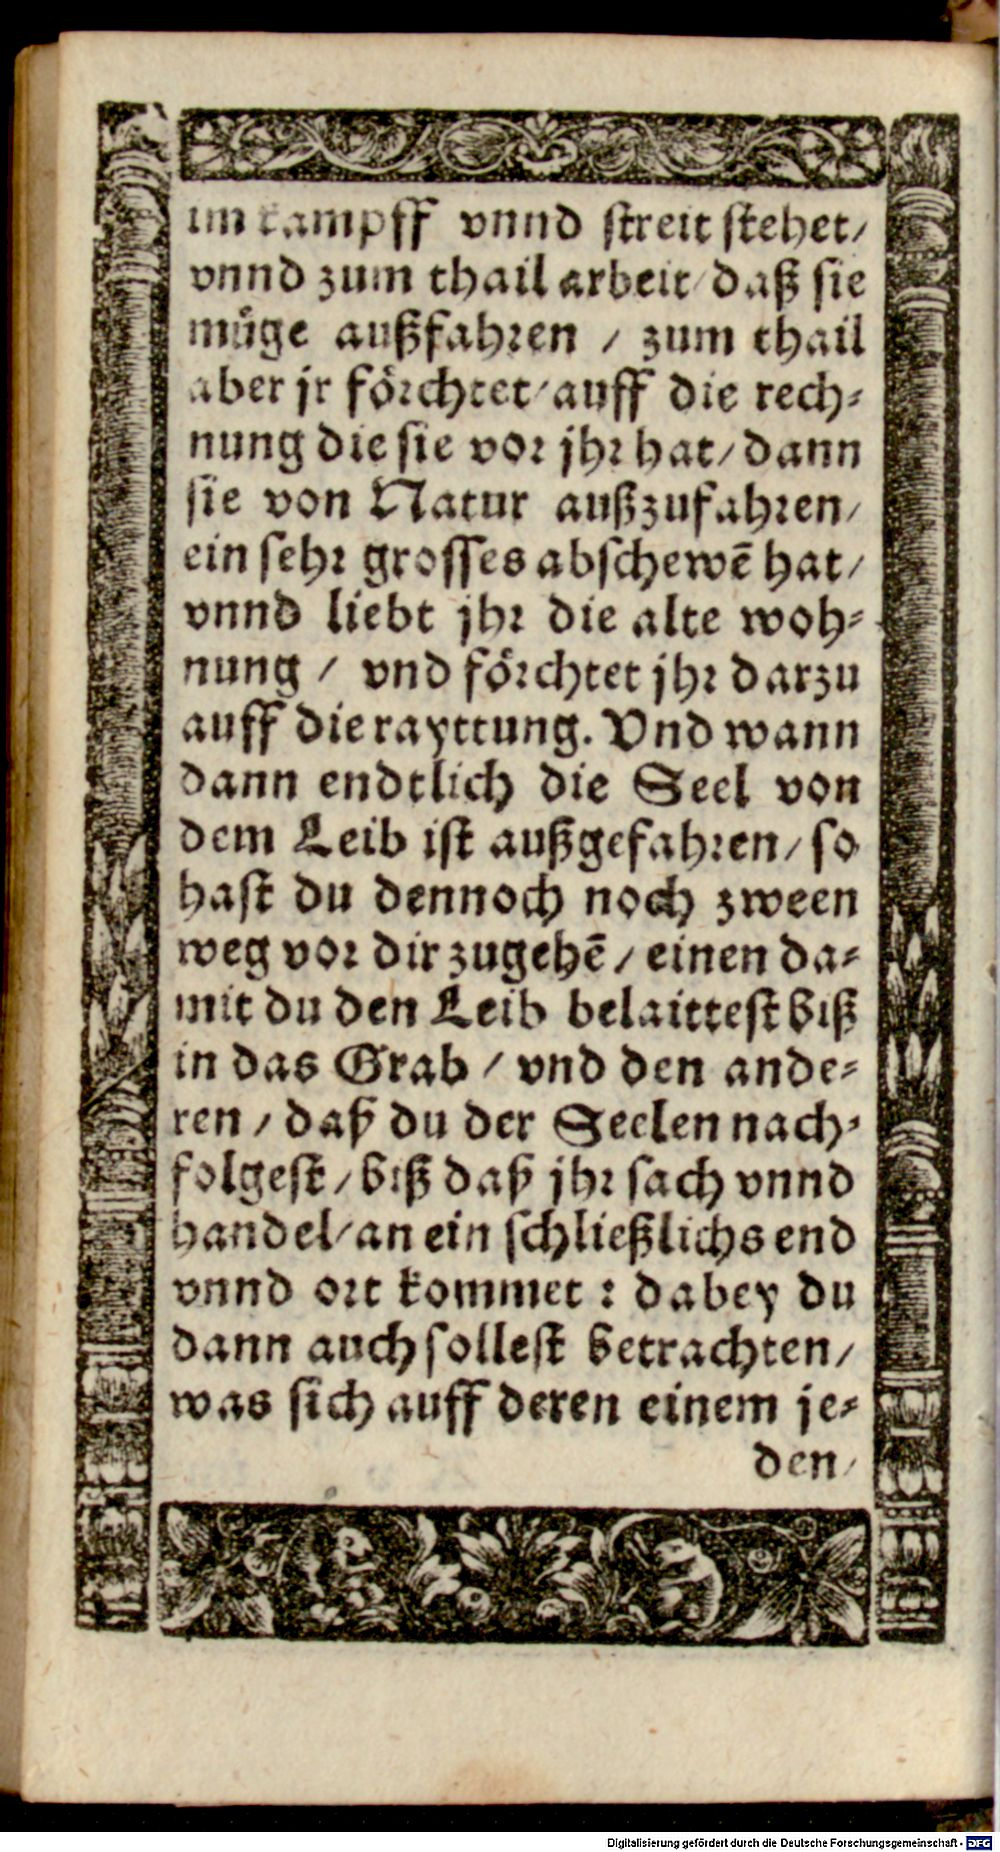 im kampff vnnd streit stehet/
vnnd zum thail arbeit/ daß sie
müge außfahren / zum thail
aber jr förchtet/ auff die rech-
nung die sie vor jhr hat/ dann
sie von Natur außzufahren/
ein sehr grosses abschewē hat/
vnnd liebt jhr die alte woh-
nung / vnd förchtet jhr darzu
auff die rayttung. Vnd wann
dann endtlich die Seel von
dem Leib ist außgefahren/ so
hast du dennoch noch zween
weg vor dir zugehē/ einen da-
mit du den Leib belaittest biß
in das Grab / vnd den ande-
ren / daß du der Seelen nach-
folgest/ biß daß jhr sach vnnd
handel/ an ein schließlichs end
vnnd ort kommet : dabey du
dann auch sollest betrachten/
was sich auff deren einem je-
den/
Digitalisierung gefördert durch die Deutsche Forschungsgemeinschaft - DFG